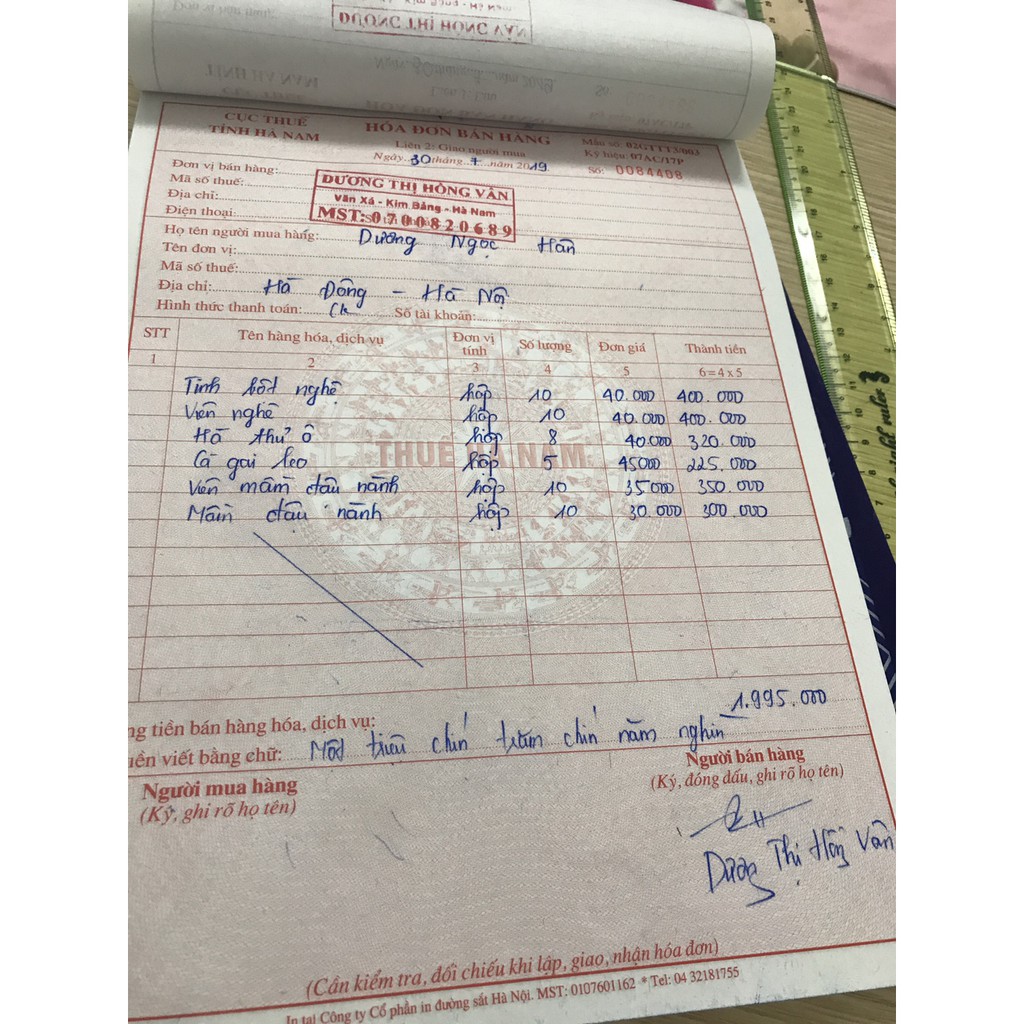 DƯƠNG THỊ HỒNG VÂN
CỤC THUẾ
TỈNH HÀ NAM
HÓA ĐƠN BÁN HÀNG
Liên 2: Giao người mua
Ngày 30 tháng 7 năm 2019
Mẫu số: 02GTTT3/003
Ký hiệu: 07AC/17P
Số: 0084408
Đơn vị bán hàng:
Mã số thuế:
Địa chỉ:
Điện thoại:
DƯƠNG THỊ HỒNG VÂN
Văn Xá - Kim Bảng - Hà Nam
MST: 0700820689
Họ tên người mua hàng: Dương Ngọc Hân
Tên đơn vị:
Mã số thuế:
Địa chỉ: Hà Đông - Hà Nội
Hình thức thanh toán: Ck Số tài khoản:
STT Tên hàng hóa, dịch vụ Đơn vị tính Số lượng Đơn giá Thành tiền
1 2 3 4 5 6 = 4 x 5
Tinh bột nghệ hộp 10 40.000 400.000
Viên nghệ hộp 10 40.000 400.000
Hà thủ ô hộp 8 40.000 320.000
Cà gai leo hộp 5 45000 225.000
Viên mầm đậu nành hộp 10 35000 350.000
Mầm đậu nành hộp 10 30.000 300.000
THUẾ HÀ NAM
ng tiền bán hàng hóa, dịch vụ: 1.995.000
iền viết bằng chữ: Một triệu chín trăm chín năm nghìn
Người mua hàng
(Ký, ghi rõ họ tên)
Người bán hàng
(Ký, đóng dấu, ghi rõ họ tên)
Dương Thị Hồng Vân
(Cần kiểm tra, đối chiếu khi lập, giao, nhận hóa đơn)
In tại Công ty Cổ phần in đường sắt Hà Nội. MST: 0107601162 * Tel: 04 32181755